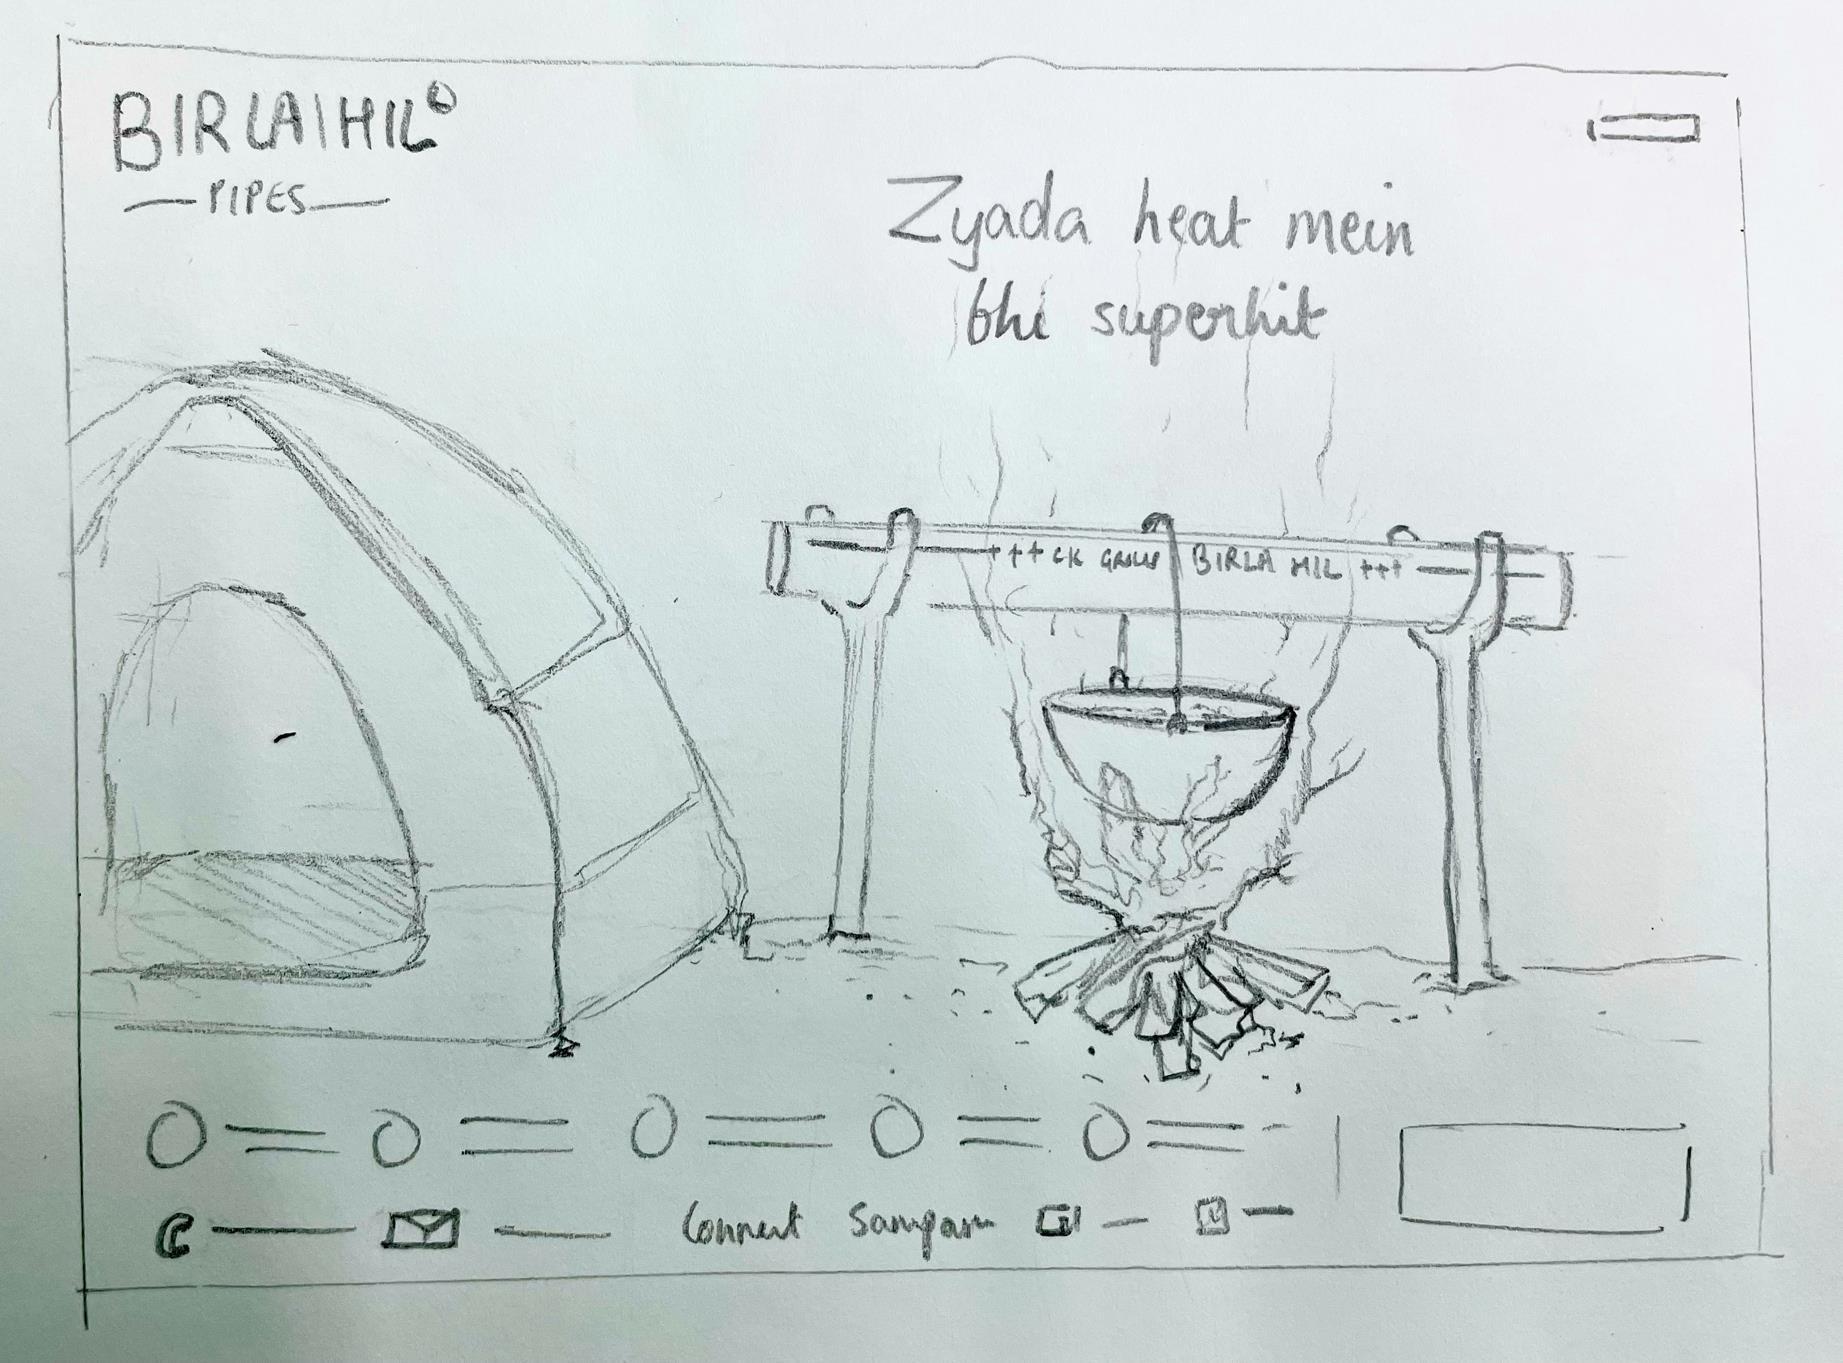 BIRLA|HIL
—PIPES—
Zyada heat mein
bhi superhit
+++ CK BIRLA HIL +++
Connect